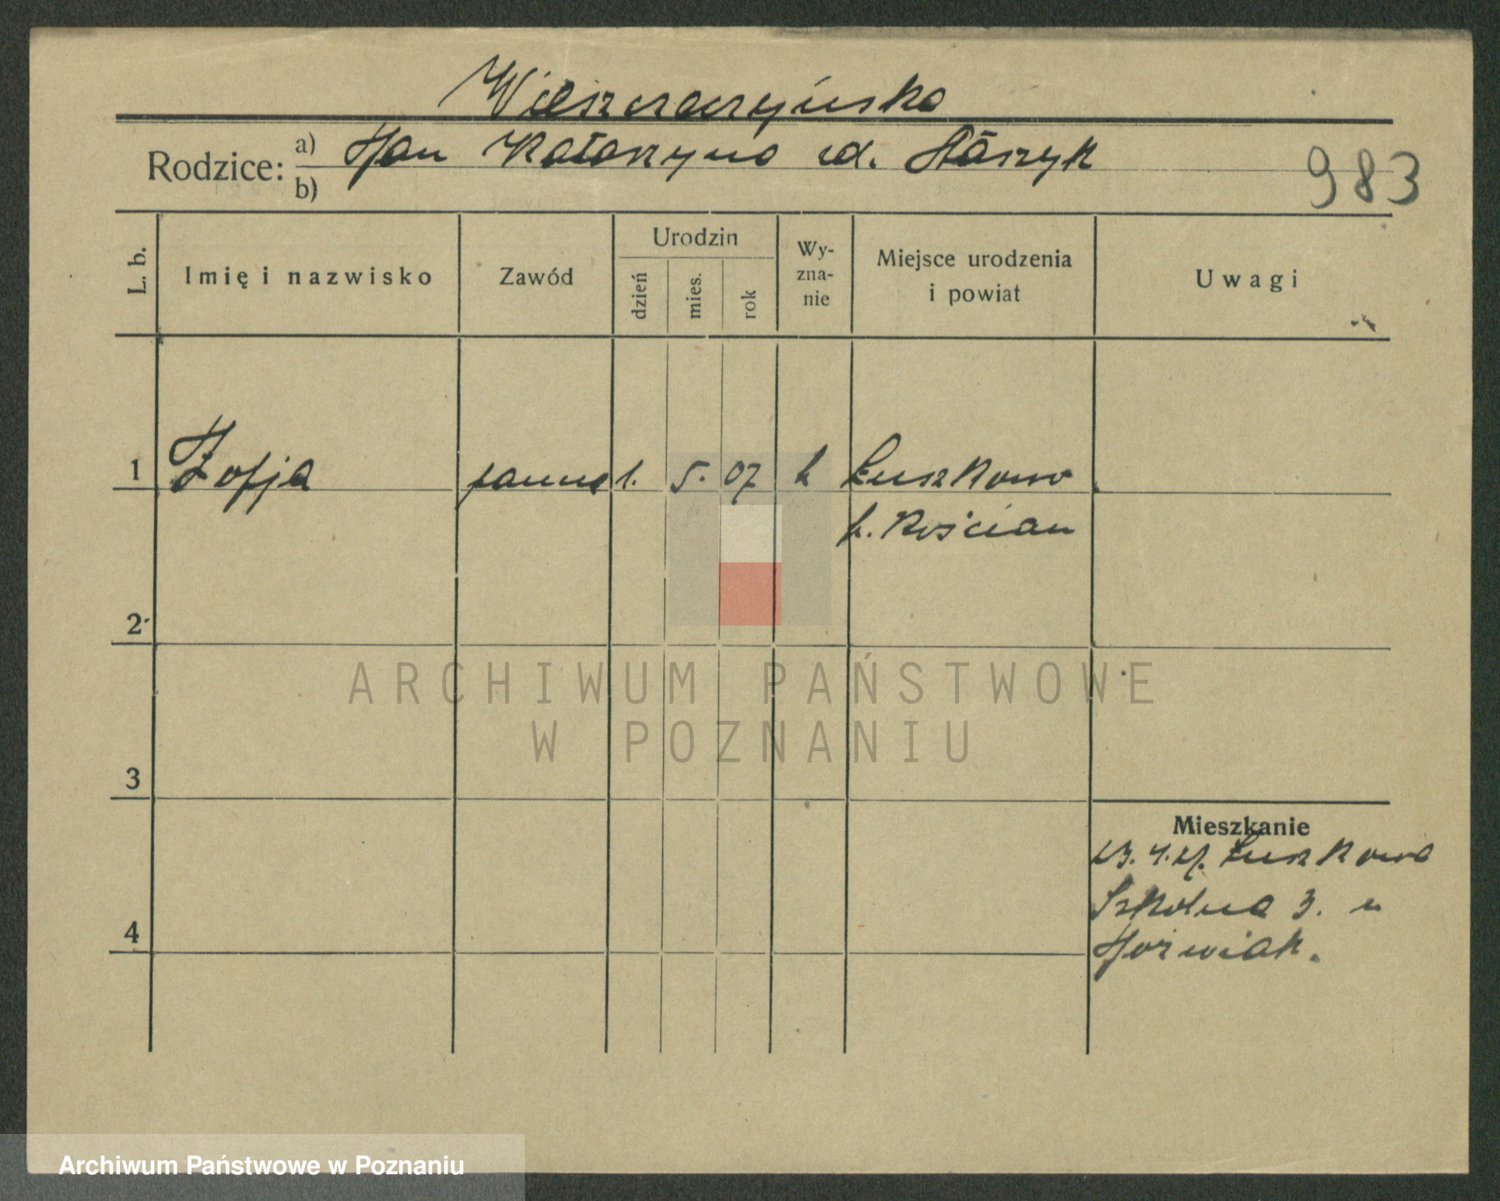 Wieszczeczyńska
Rodzice: a) Jan Katarzyna zd. Stószyk
b)
983
L. b.
Imię i nazwisko
Zawód
Urodzin
dzień
mies.
rok
Wy-
zna-
nie
Miejsce urodzenia
i powiat
Uwagi
1 Zofja panna 1. 5. 07 k Łuszkowo
p. Kościan
2
3
4
Mieszkanie
Łuszkowo
Szkolna 3. u
ARCHIWUM PAŃSTWOWE
W POZNANIU
Archiwum Państwowe w Poznaniu